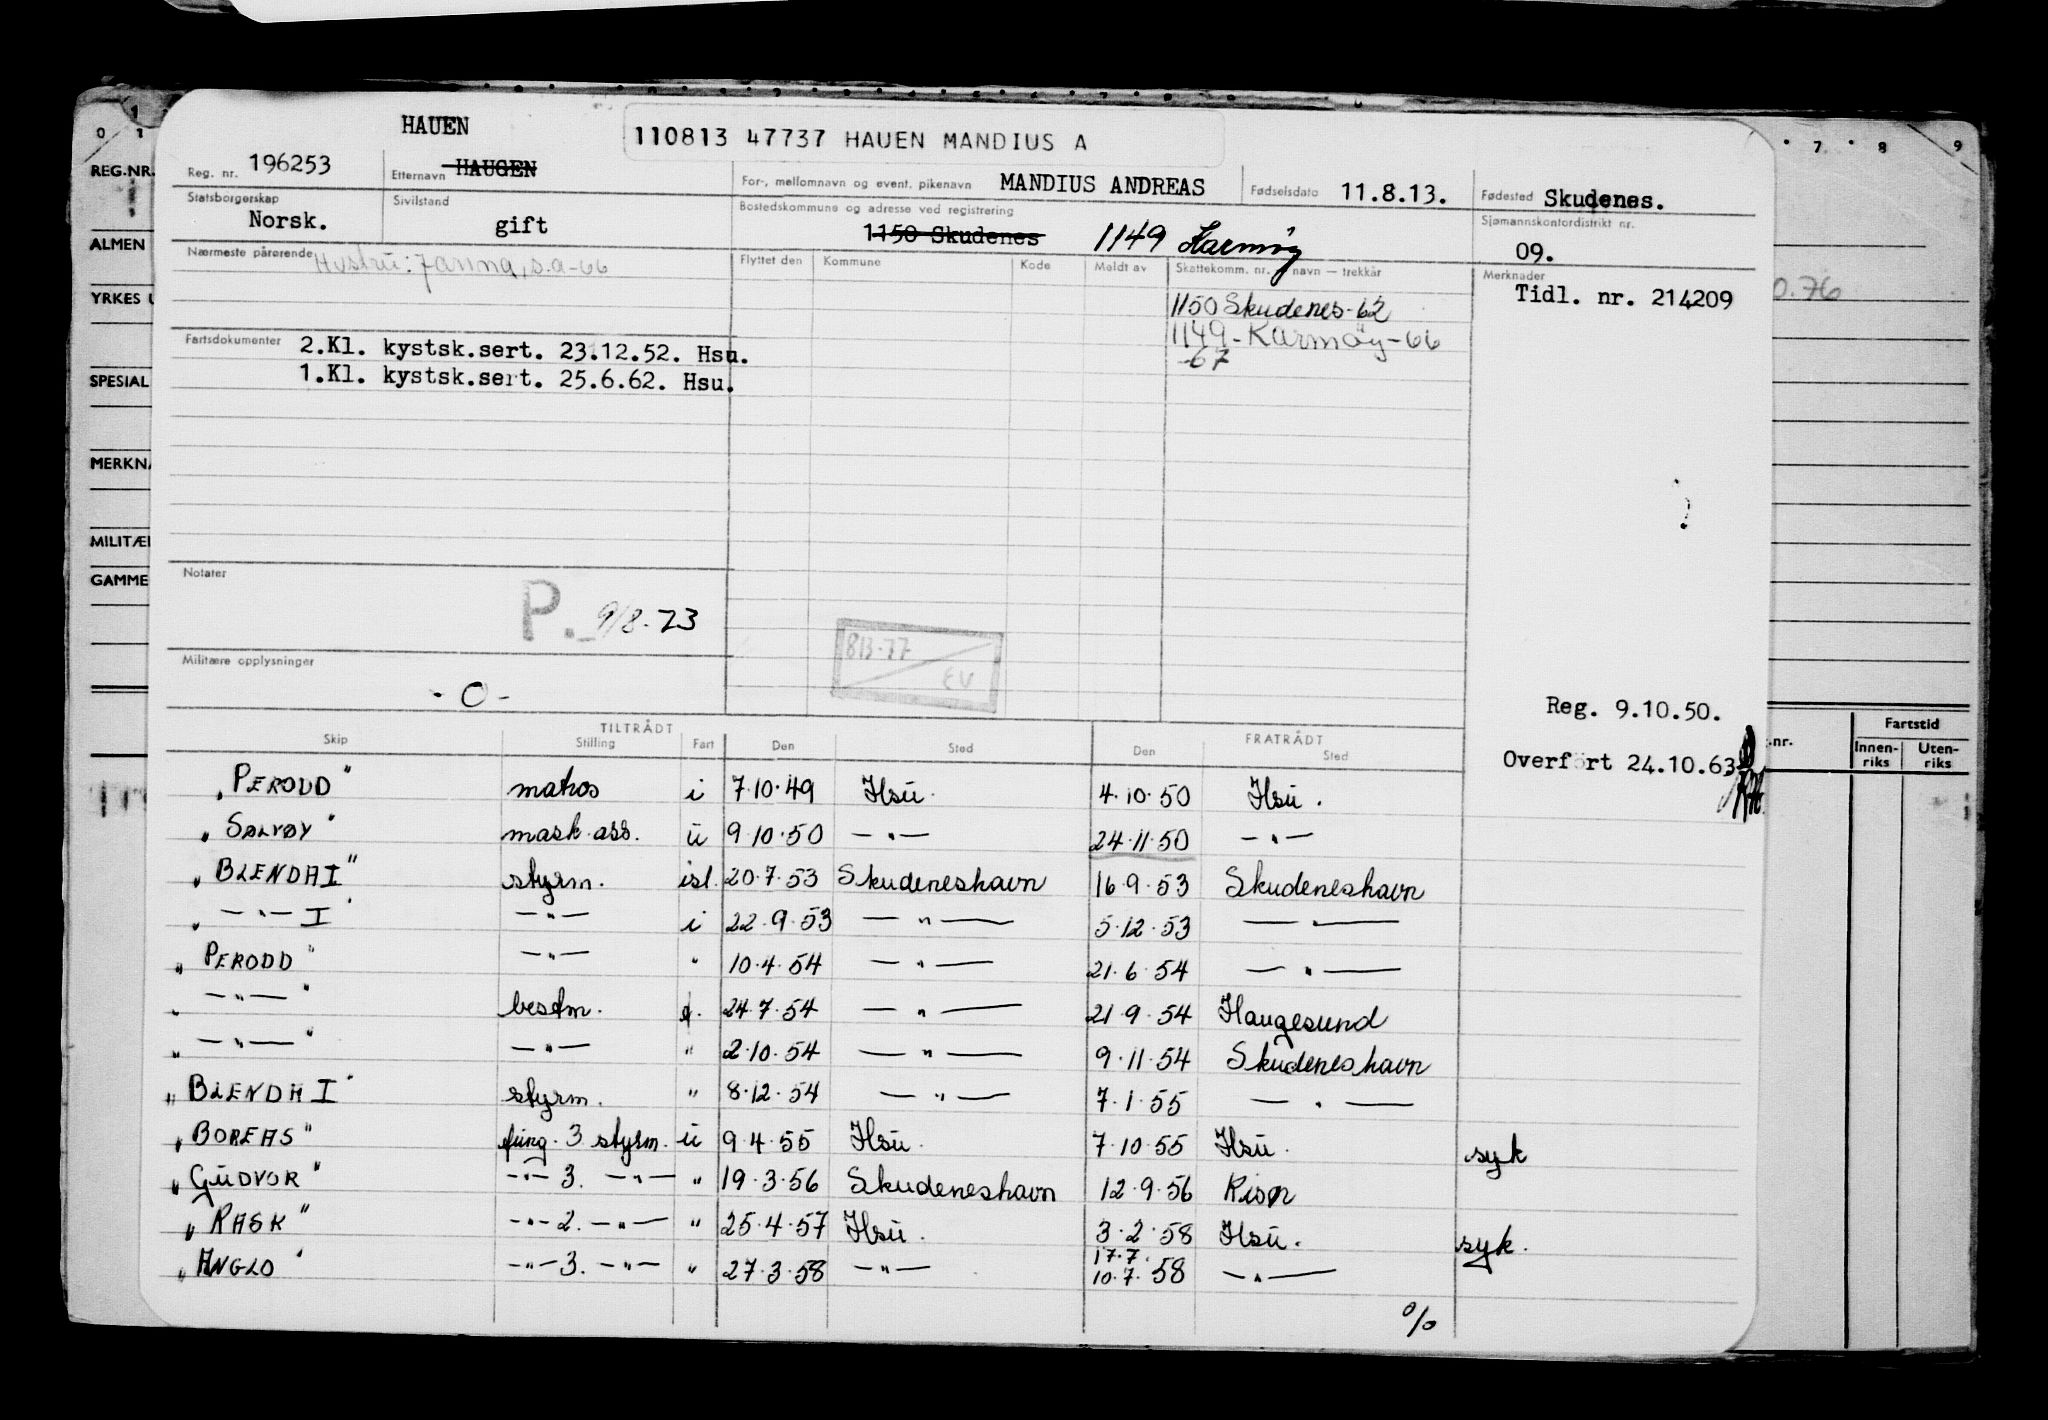 HAUEN
110813 47737 HAUEN MANDIUS A
Reg. nr. 196253
Etternavn HAUGEN
For-, mellomnavn og event. pikenavn MANDIUS ANDREAS
Fødselsdato 11.8.13.
Fødested Skudenes.
Statsborgerskap Norsk.
Sivilstand gift
Bostedskommune og adresse ved registrering
1150 Skudenes 1149 Karmøy
Sjømannskontordistrikt nr.
09.
Nærmeste pårørende Hustru: Janna, s.a-66
Flyttet den Kommune Kode Meldt av Skattekomm. nr. navn — trekkår
Merknader
Tidl. nr. 214209
1150 Skudenes-62
1149-Karmöy-66
-67
Fartsdokumenter 2.Kl. kystsk.sert. 23.12.52. Hsu.
1.Kl. kystsk.sert. 25.6.62. Hsu.
Notater
P. 9/8-73
813-77
EV
Militære opplysninger
-0-
Reg. 9.10.50.
Overført 24.10.63
TILTRÅDT FRATRÅDT
Skip Stilling Fart Den Sted Den Sted
"PERODD" matros i 7.10.49 Hsu. 4.10.50 Hsu.
"SALVØY" mask.ass. u 9.10.50 —"— 24.11.50 —"—
"BLENDA I" styrm. isl. 20.7.53 Skudeneshavn 16.9.53 Skudeneshavn
"—"— I" —"— i 22.9.53 —"— 5.12.53 —"—
"PERODD" —"— " 10.4.54 —"— 21.6.54 —"—
"—"—" bestm. f. 24.7.54 —"— 21.9.54 Haugesund
"—"—" —"— " 2.10.54 —"— 9.11.54 Skudeneshavn
"BLENDA I" styrm. " 8.12.54 —"— 7.1.55 —"—
"BOREAS" fung. 3 styrm. u 9.4.55 Hsu. 7.10.55 Hsu. syk
"GUDVOR" —"— 3. —"— " 19.3.56 Skudeneshavn 12.9.56 Risør
"RASK" —"— 2. —"— " 25.4.57 Hsu. 3.2.58 Hsu. syk.
17.7.
"ANGLO" —"— 3. —"— " 27.3.58 —"— 10.7.58 —"—
%
0 1
REG.NR.
ALMEN
YRKES U
SPESIAL
MERKNA
MILITÆR
GAMME
7 8 9
0.76
.nr.
Fartstid
Innenriks
Utenriks